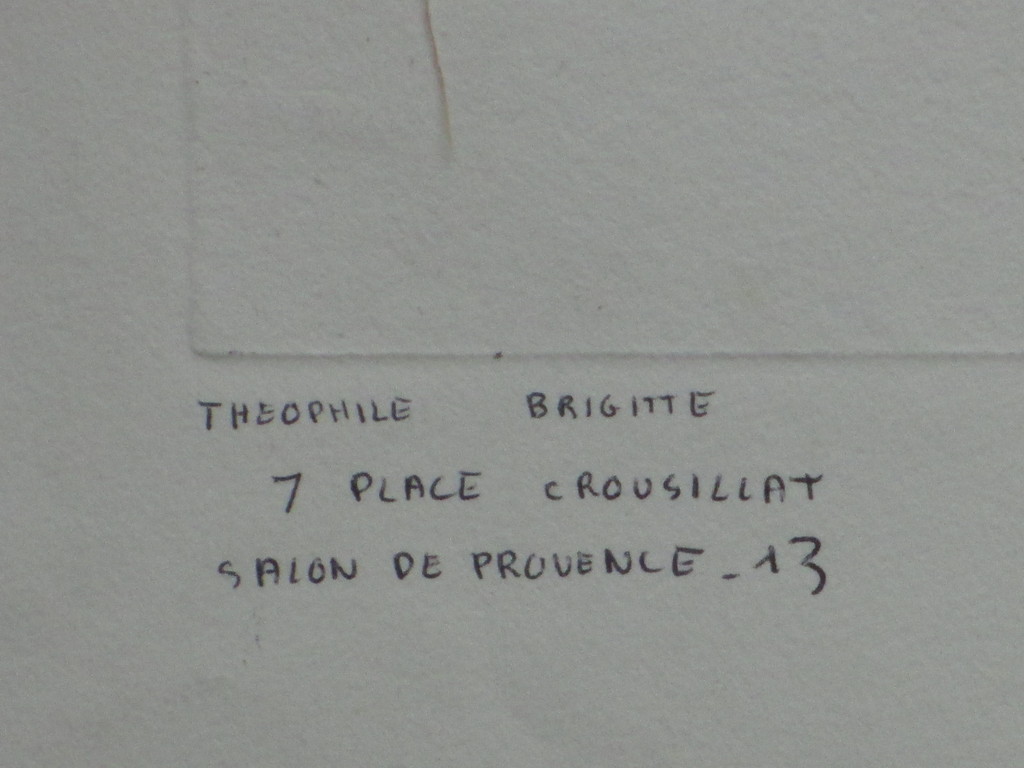 THEOPHILE BRIGITTE
7 PLACE CROUSILLAT
SALON DE PROVENCE - 13